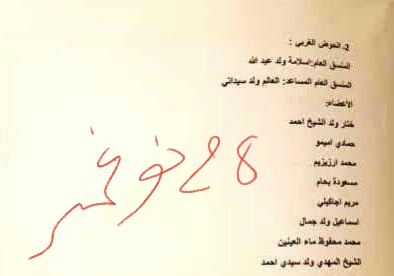 2ـ الحوض الغربي :
المنسق العام:اسلامة ولد عبد الله
المنسق العام المساعد: العالم ولد سيداتي
الأعضاء:
ختار ولد الشيخ احمد
حمادي اميمو
محمد ارزيزيم
مسعودة بحام
مريم اجاكيلي
اسماعيل ولد جمال
محمد محفوظ ماء العينين
الشيخ المهدي ولد سيدي احمد
28 نوفمبر